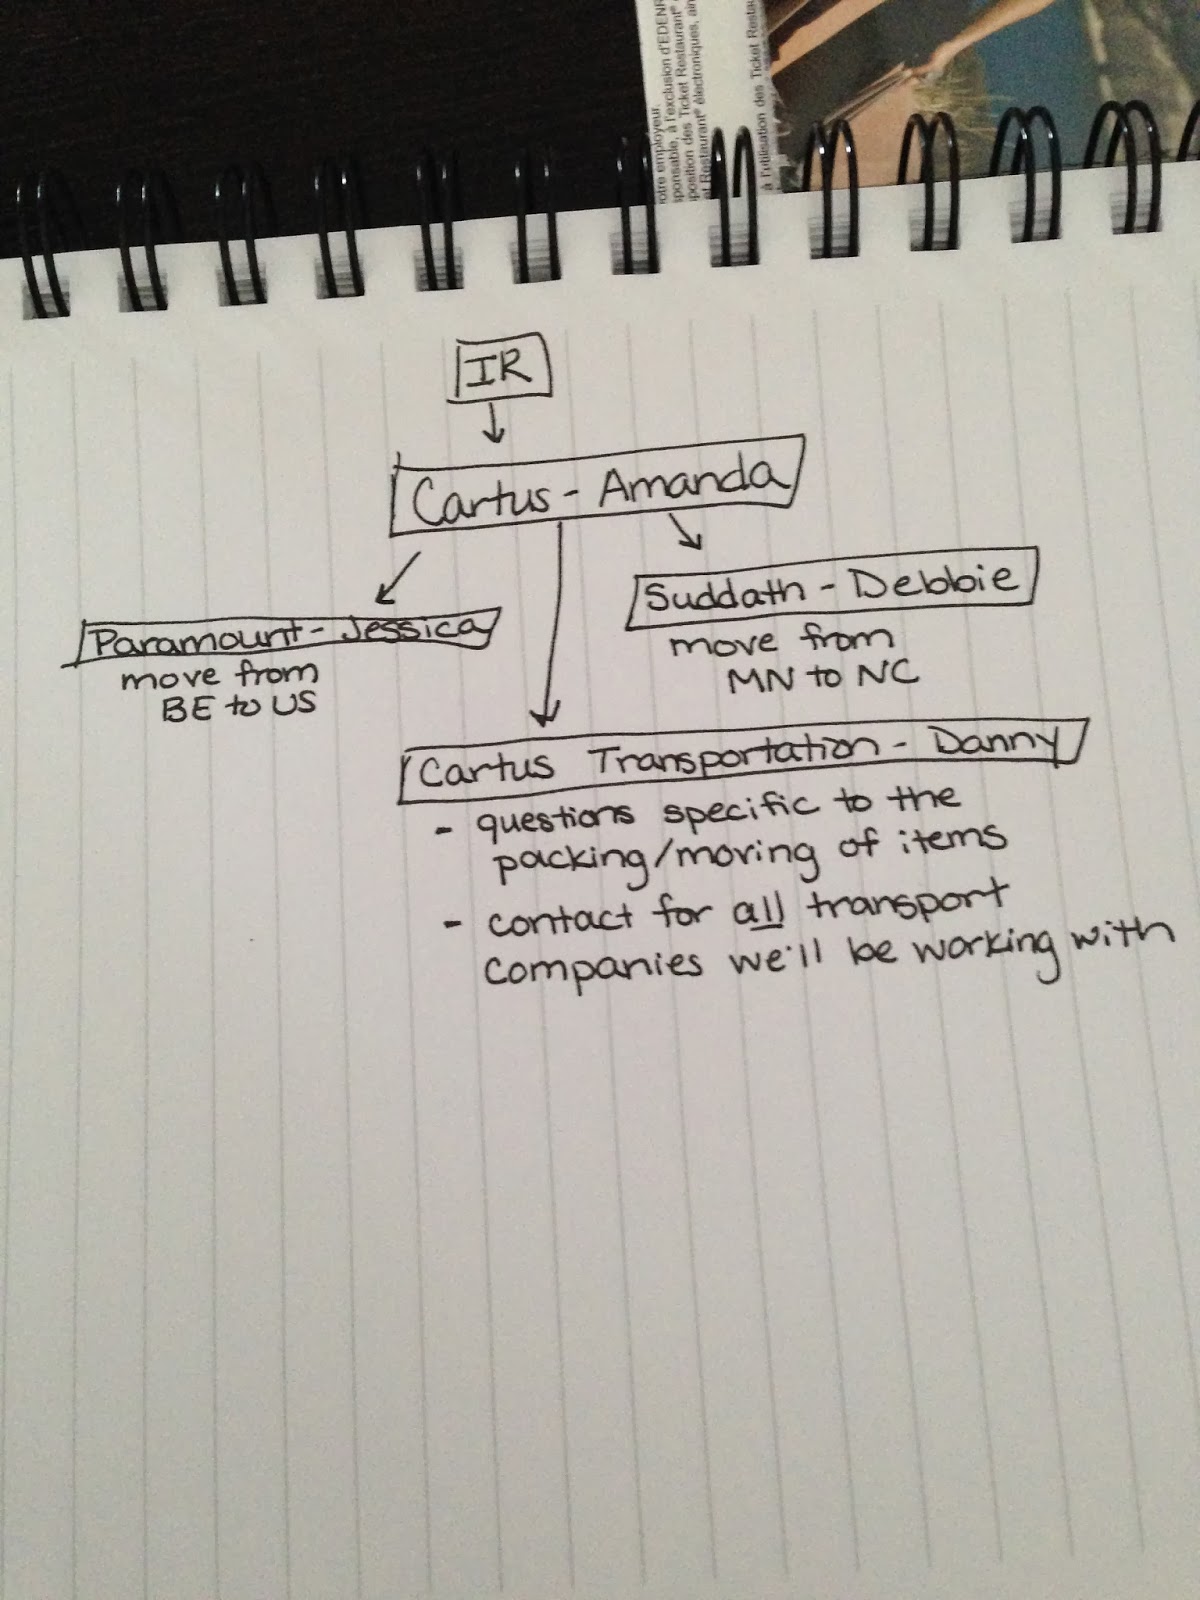 otre employeur.
sponsable, à l'exclusion d'EDENR
position des Ticket Restaurant®
et Restaurant® électroniques, ain
à l'utilisation des Ticket Restau
IR
Cartus - Amanda
Suddath - Debbie
move from
MN to NC
Paramount - Jessica
move from
BE to US
Cartus Transportation - Danny
- questions specific to the
packing/moving of items
- contact for all transport
companies we'll be working with